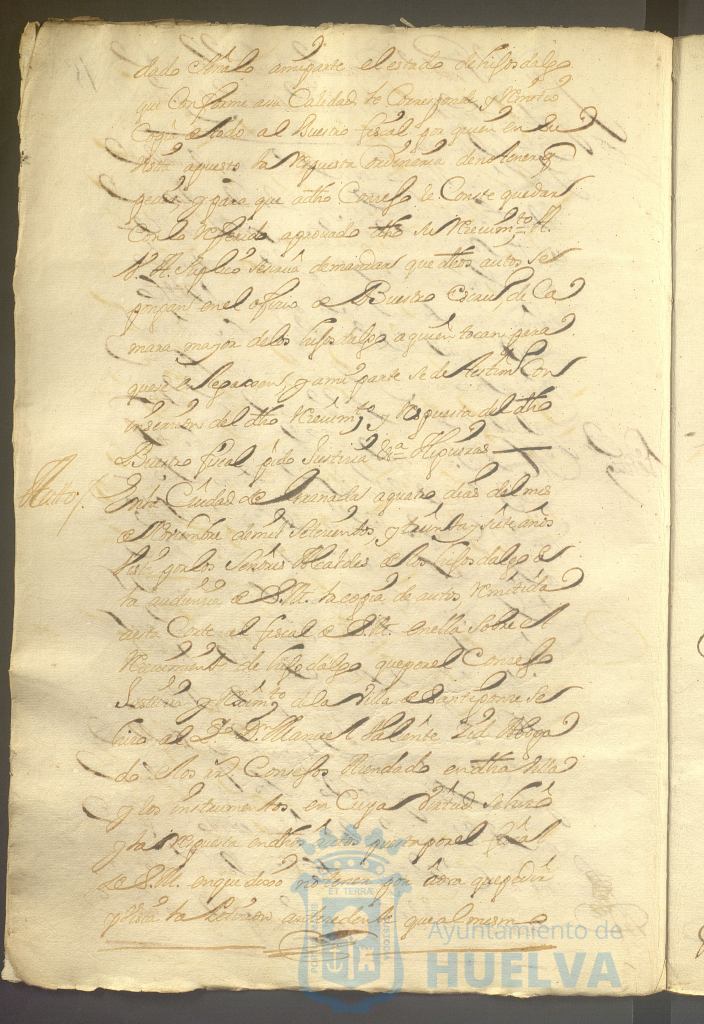 dado a mi parte el estado de hijosdalgo
que conforme a su Calidad le Corresponde y Remitio
Copia de todo al Vuestro fiscal por quien en su
Vista a puesto la Respuesta ordinaria de no tener q
pedir y para que a dho Consejo le Conste quedar
Con lo Referido aprovado dho su Recivim.to A
V. A. Suplico se sirva de mandar que dhos autos se
pongan en el ofizio de Vuestro Escriv.o de Ca
mara maior de los hijosdalgo a quien tocan para
que se en y a mi parte se de testim.o Con
insercion del dho Recivim.to y Respuesta del dho
Vuestro fiscal pido Justicia &.a
Auto /. En la Ciudad de Granada a quatro dias del mes
de Noviembre de mil Setecientos y treinta y siete años
Visto por los Señores Alcaldes de los hijosdalgo de
la audienzia de S.M. la copia de autos Remitida
a esta Corte al fiscal de S.M. en ella sobre el
Recivimiento de hijodalgo que por el Consejo
Justicia y Reximi.to de la Villa de Santiponze se
hizo al D.or D.n Manuel Valiente Vid Aboga
do de los R.s Consejos Hazendado en dha Villa
y los instrumentos en Cuya Virtud se hizo
y la Respuesta en dhos autos puesta por el fiscal
de S.M. en que dixo no tener por aora que pedir
y Vista la Peticion antecedente que al mismo
POR TUS MARIS ET TERRAE CUSTODIA
Ayuntamiento de
HUELVA